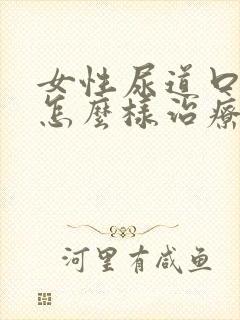 女性尿道口
怎麼樣治療
河里有咸鱼